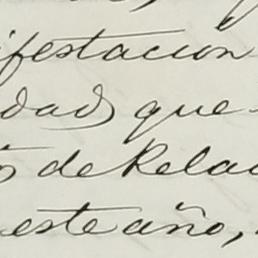 ifestacion
dad, que
de Relac
este año,